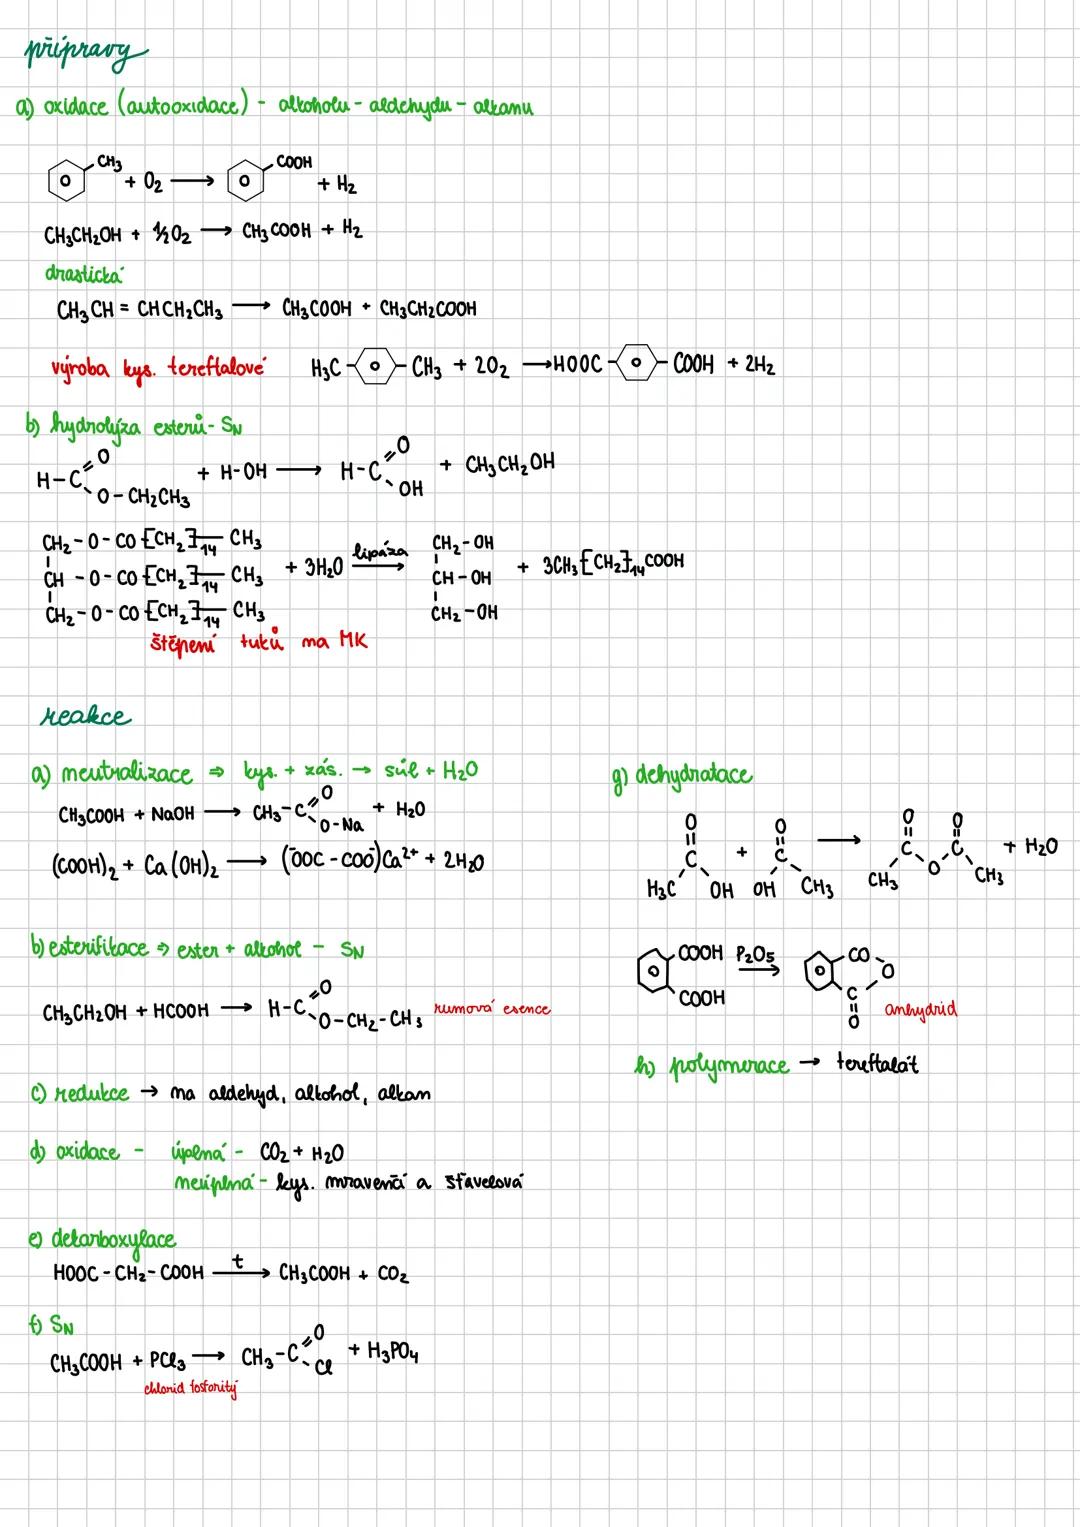 přípravy
a) oxidace (autooxidace) - alkoholu - aldehydu - alkanu
CH₃ + O₂ → COOH + H₂
CH₃CH₂OH + ½O₂ → CH₃COOH + H₂
drastická
CH₃CH = CHCH₂CH₃ → CH₃COOH + CH₃CH₂COOH
výroba kys. tereftalové H₃C - CH₃ + 2O₂ → HOOC - COOH + 2H₂
b) hydrolýza esterů - SN
H-C=O O-CH₂CH₃ + H-OH → H-C=O OH + CH₃CH₂OH
CH₂-O-CO[CH₂]₁₄ CH₃
CH-O-CO[CH₂]₁₄ CH₃ + 3H₂O lipáza → CH₂-OH CH-OH CH₂-OH + 3CH₃[CH₂]₁₄COOH
CH₂-O-CO[CH₂]₁₄ CH₃
štěpení tuků na MK
reakce
a) neutralizace ⇒ kys. + zás. → sůl + H₂O
CH₃COOH + NaOH → CH₃-C=O O-Na + H₂O
(COOH)₂ + Ca(OH)₂ → (⁻OOC-COO⁻)Ca²⁺ + 2H₂O
b) esterifikace ⇒ ester + alkohol - SN
CH₃CH₂OH + HCOOH → H-C=O O-CH₂-CH₃ rumová esence
c) redukce → na aldehyd, alkohol, alkan
d) oxidace - úplná - CO₂ + H₂O
neúplná - kys. mravenčí a šťavelová
e) dekarboxylace
HOOC-CH₂-COOH t → CH₃COOH + CO₂
f) SN
CH₃COOH + PCl₃ → CH₃-C=O Cl + H₃PO₄
chlorid fosforitý
g) dehydratace
H₃C C=O OH + OH C=O CH₃ → CH₃ C=O O C=O CH₃ + H₂O
COOH COOH P₂O₅ → CO O C=O anhydrid
h) polymerace → tereftalát